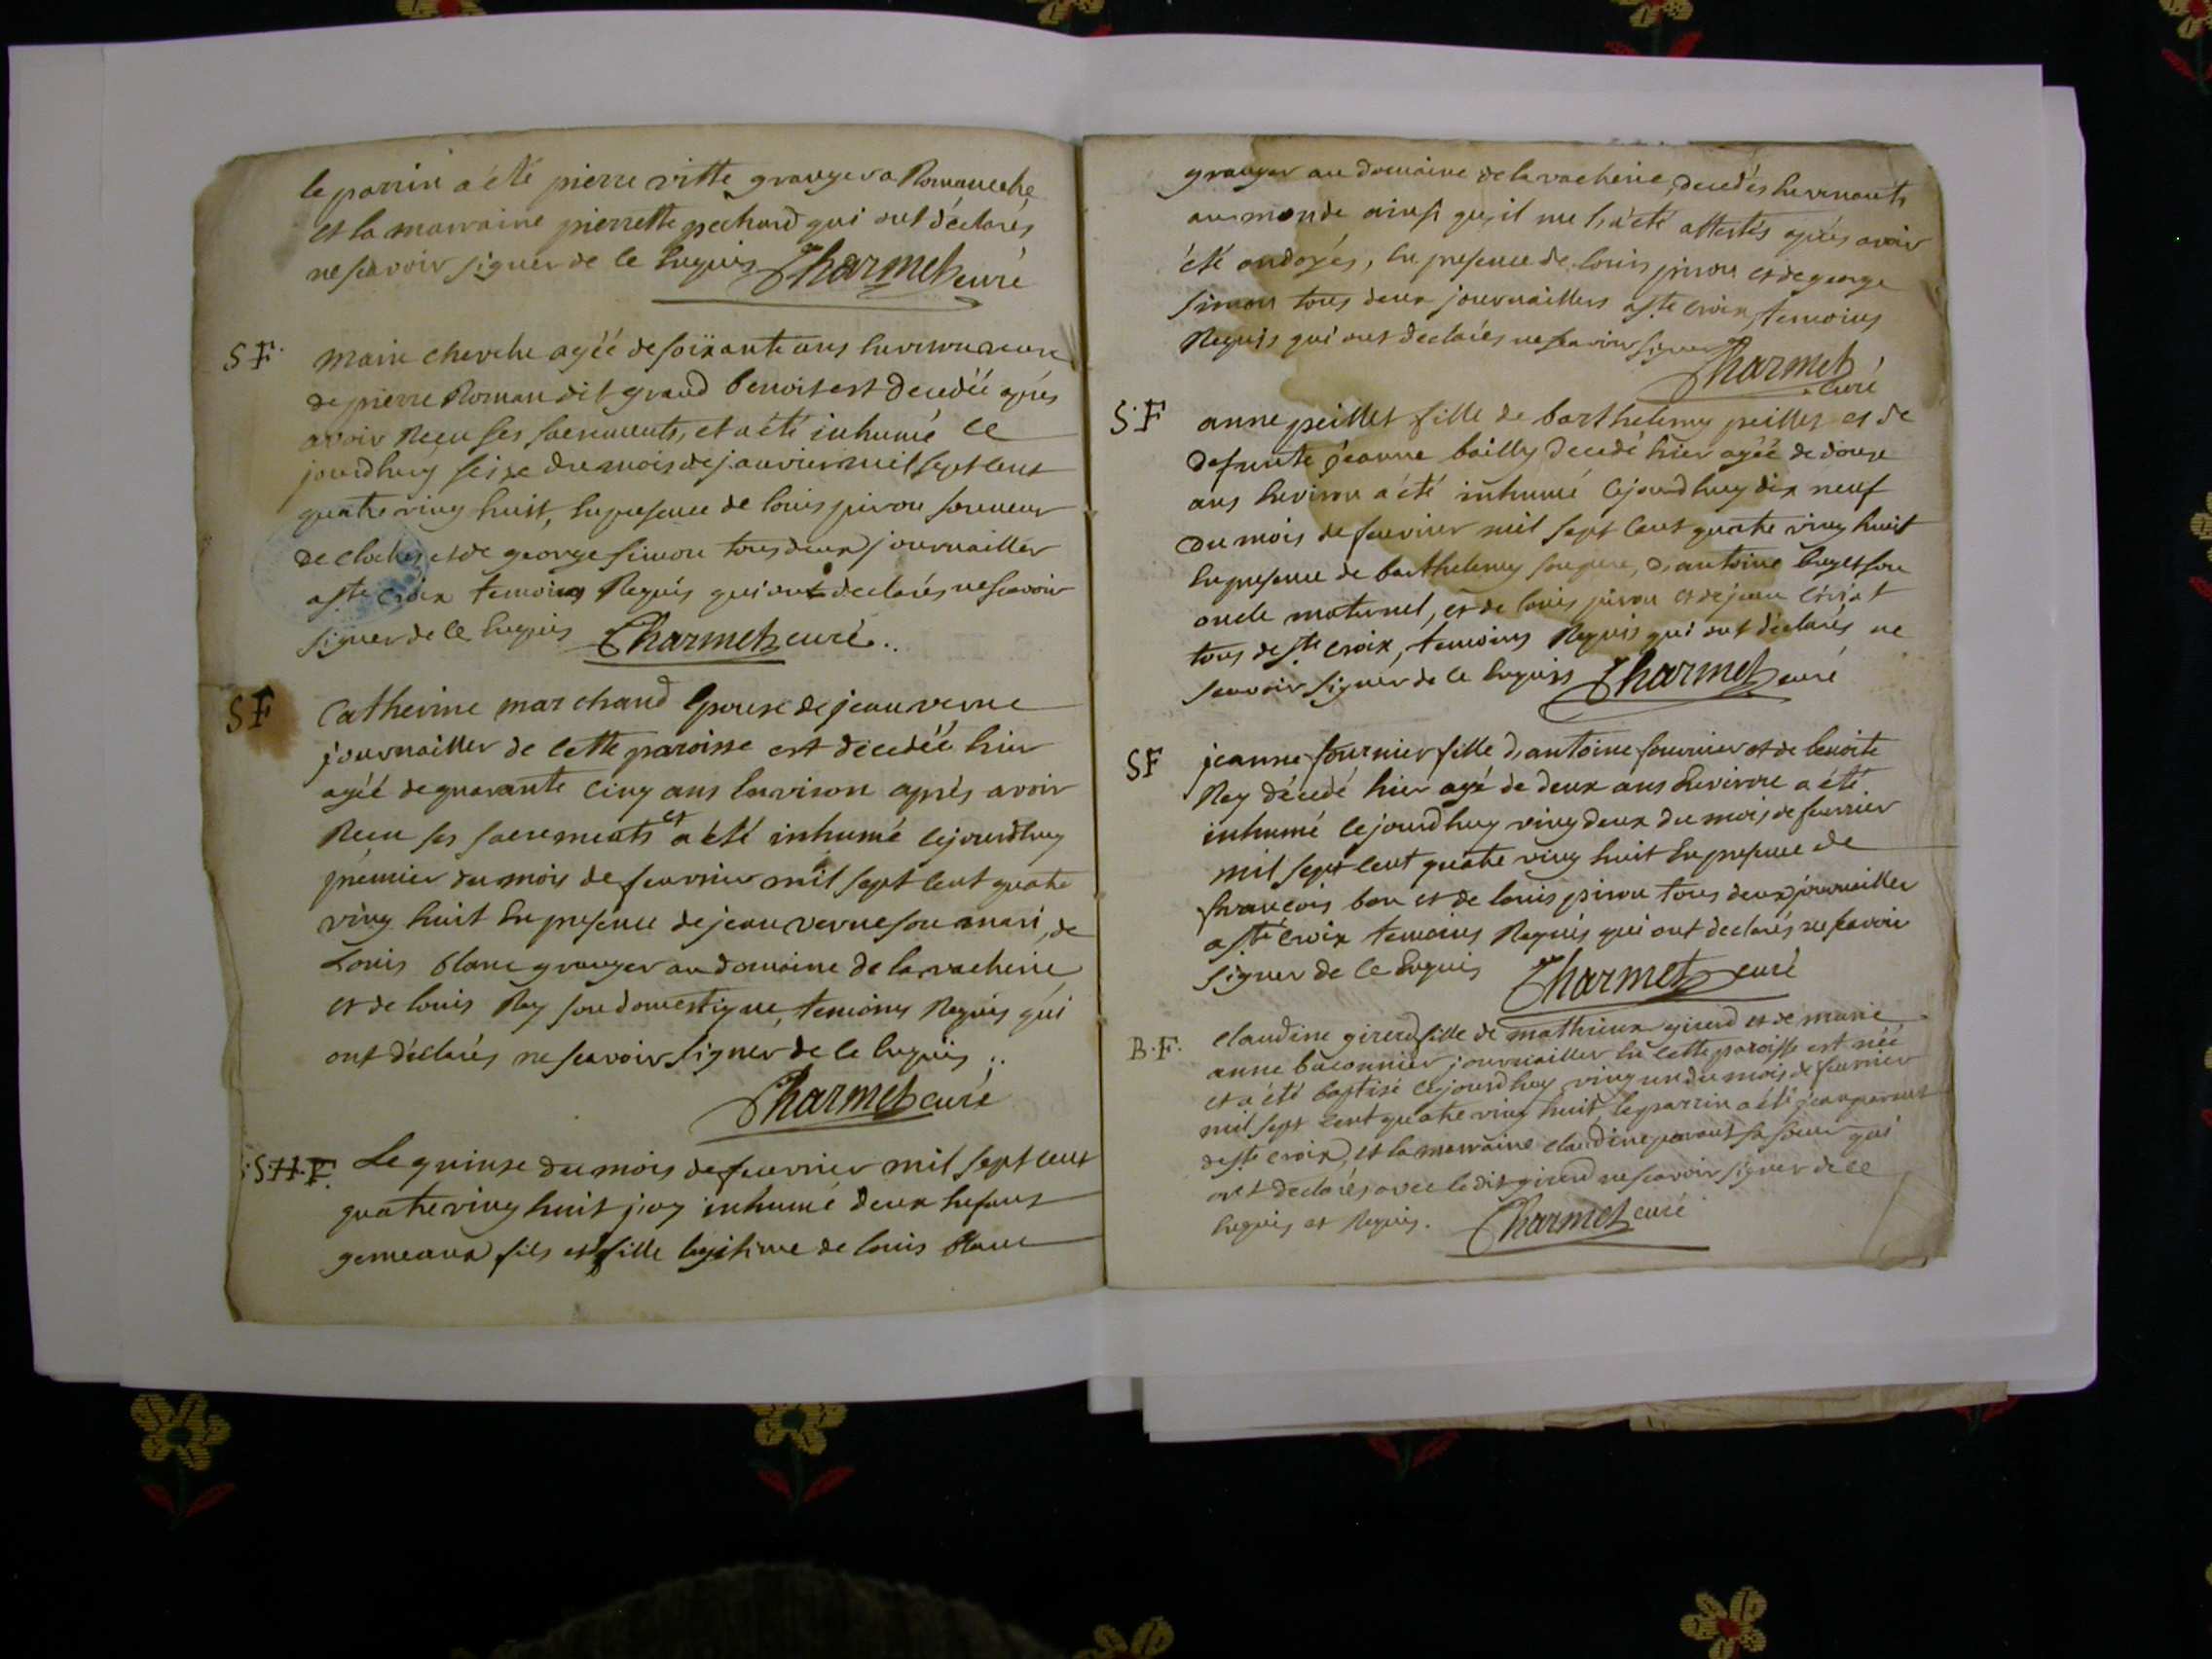 le parrin a été pierre vitte granger a Romaneche
et la marraine pierrette pechard qui ont déclarés
ne scavoir signer de ce Enquis Charmet curé
SF. marie cherche agéé de soixante ans Environ veuve
de pierre Roman dit grand benoit est decedéé aprés
avoir Recu ses sacrements, et a été inhumé ce
jourdhuy seize du mois de janvier mil sept cent
quatre ving huit, En presence de louis pivon sonneur
de cloches et de george simon tous deux journailler
a ste croix temoins Requis qui ont declarés ne scavoir
signer de ce Enquis Charmet curé..
SF Catherine marchand Epouse de jean verne
journailler de cette paroisse est décedéé hier
agéé de quarante cinq ans Environ aprés avoir
Recu ses sacrements et a été inhumé cejourdhuy
prémier du mois de fevrier mil sept cent quatre
ving huit En presence de jean verne son mari, de
Louis blanc granger au domaine de la vacherie
et de louis Rey son domestique, temoins Requis qui
ont déclarés ne scavoir signer de ce Enquis ..
Charmet curé
S.H.F. Le quinze du mois de fevrier mil sept cent
quatre ving huit j'ay inhumé deux Enfans
gemeaux fils et fille legitime de louis blanc
granger au domaine de la vacherie, decedés En venants
au monde ainsi qu'il m'a été attestés aprés avoir
été ondoyés, En presence de louis pivon et de george
simon tous deux journaillers a ste croix, temoins
Requis qui ont declarés ne scavoir signer
Charmet
curé
S.F anne peillet fille de barthelemy peillet et de
defunte jéanne bailly decedé hier agéé de douze
ans Environ a été inhumé cejourdhuy dix neuf
du mois de fevrier mil sept cent quatre ving huit
En presence de barthelemy son pere, d'antoine son
oncle maternel, et de louis pivon et de jean
tous de ste croix, temoins Requis qui ont déclarés ne
scavoir signer de ce Enquis Charmet curé
SF jeanne fournier fille d'antoine fournier et de benoite
Rey décedé hier agé de deux ans Environ a été
inhumé cejourdhuy ving deux du mois de fevrier
mil sept cent quatre ving huit En presence de
francois bon et de louis pivon tous deux journailler
a ste croix temoins Requis qui ont declarés ne scavoir
signer de ce Enquis Charmet curé
B.F. Claudine girerd fille de mathieux girerd et de marie
anne buconnier journailler En cette paroisse est néé
et a été baptisé cejourdhuy ving un du mois de fevrier
mil sept cent quatre ving huit, le parrin a été jean
de ste croix, et la marraine claudine sa soeur qui
ont declarés avec ledit girerd ne scavoir signer de ce
Enquis et Requis. Charmet curé